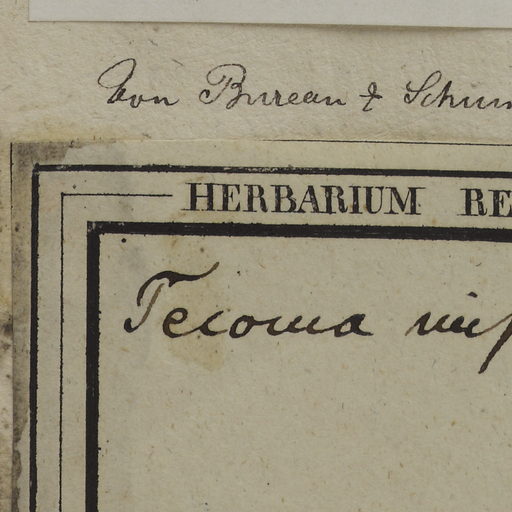 Von Bureau & Schum
HERBARIUM RE
Tecoma